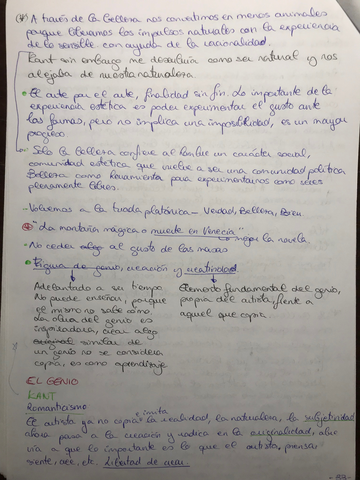 A través de la belleza nos convertimos en menos animales
porque llevamos los impulsos naturales con la experiencia
de lo sensible con ayuda de la racionalidad.
Kant sin embargo me desvincula como ser natural y nos
alejaba de nuestra naturaleza
El arte por el arte, finalidad sin fin. Lo importante de la
experiencia estética es poder experimentar el gusto ante
las formas, pero no implica una imposibilidad, es un mayor
progreso
Solo la belleza confiere al hombre un carácter social,
comunidad estética que vuelve a ser una comunidad política
Belleza como herramienta para experimentarnos como seres
plenamente libres.
-Volvemos a la triada platónica - Verdad, Belleza, Bien.
"La montaña mágica o muerte en Venecia"
mejor la novela
-No ceder al gusto de las masas
Figura de genio, creación y creatividad
Adelantado a su tiempo
No puede enseñar, porque
él mismo no sabe cómo.
La obra del genio es
inspiradora, crear algo
original similar de
un genio no se considera
copia, es como aprendizaje
Elemento fundamental del genio,
propia del artista, frente a
aquel que copia
EL GENIO
KANT
Romanticismo
imita
El artista ya no copia la realidad, la naturaleza, la subjetividad
ahora pasa a la creación y radica en la originalidad, abre
vía a que lo importante es lo que el artista piensa,
siente, cree, etc. Libertad de crear